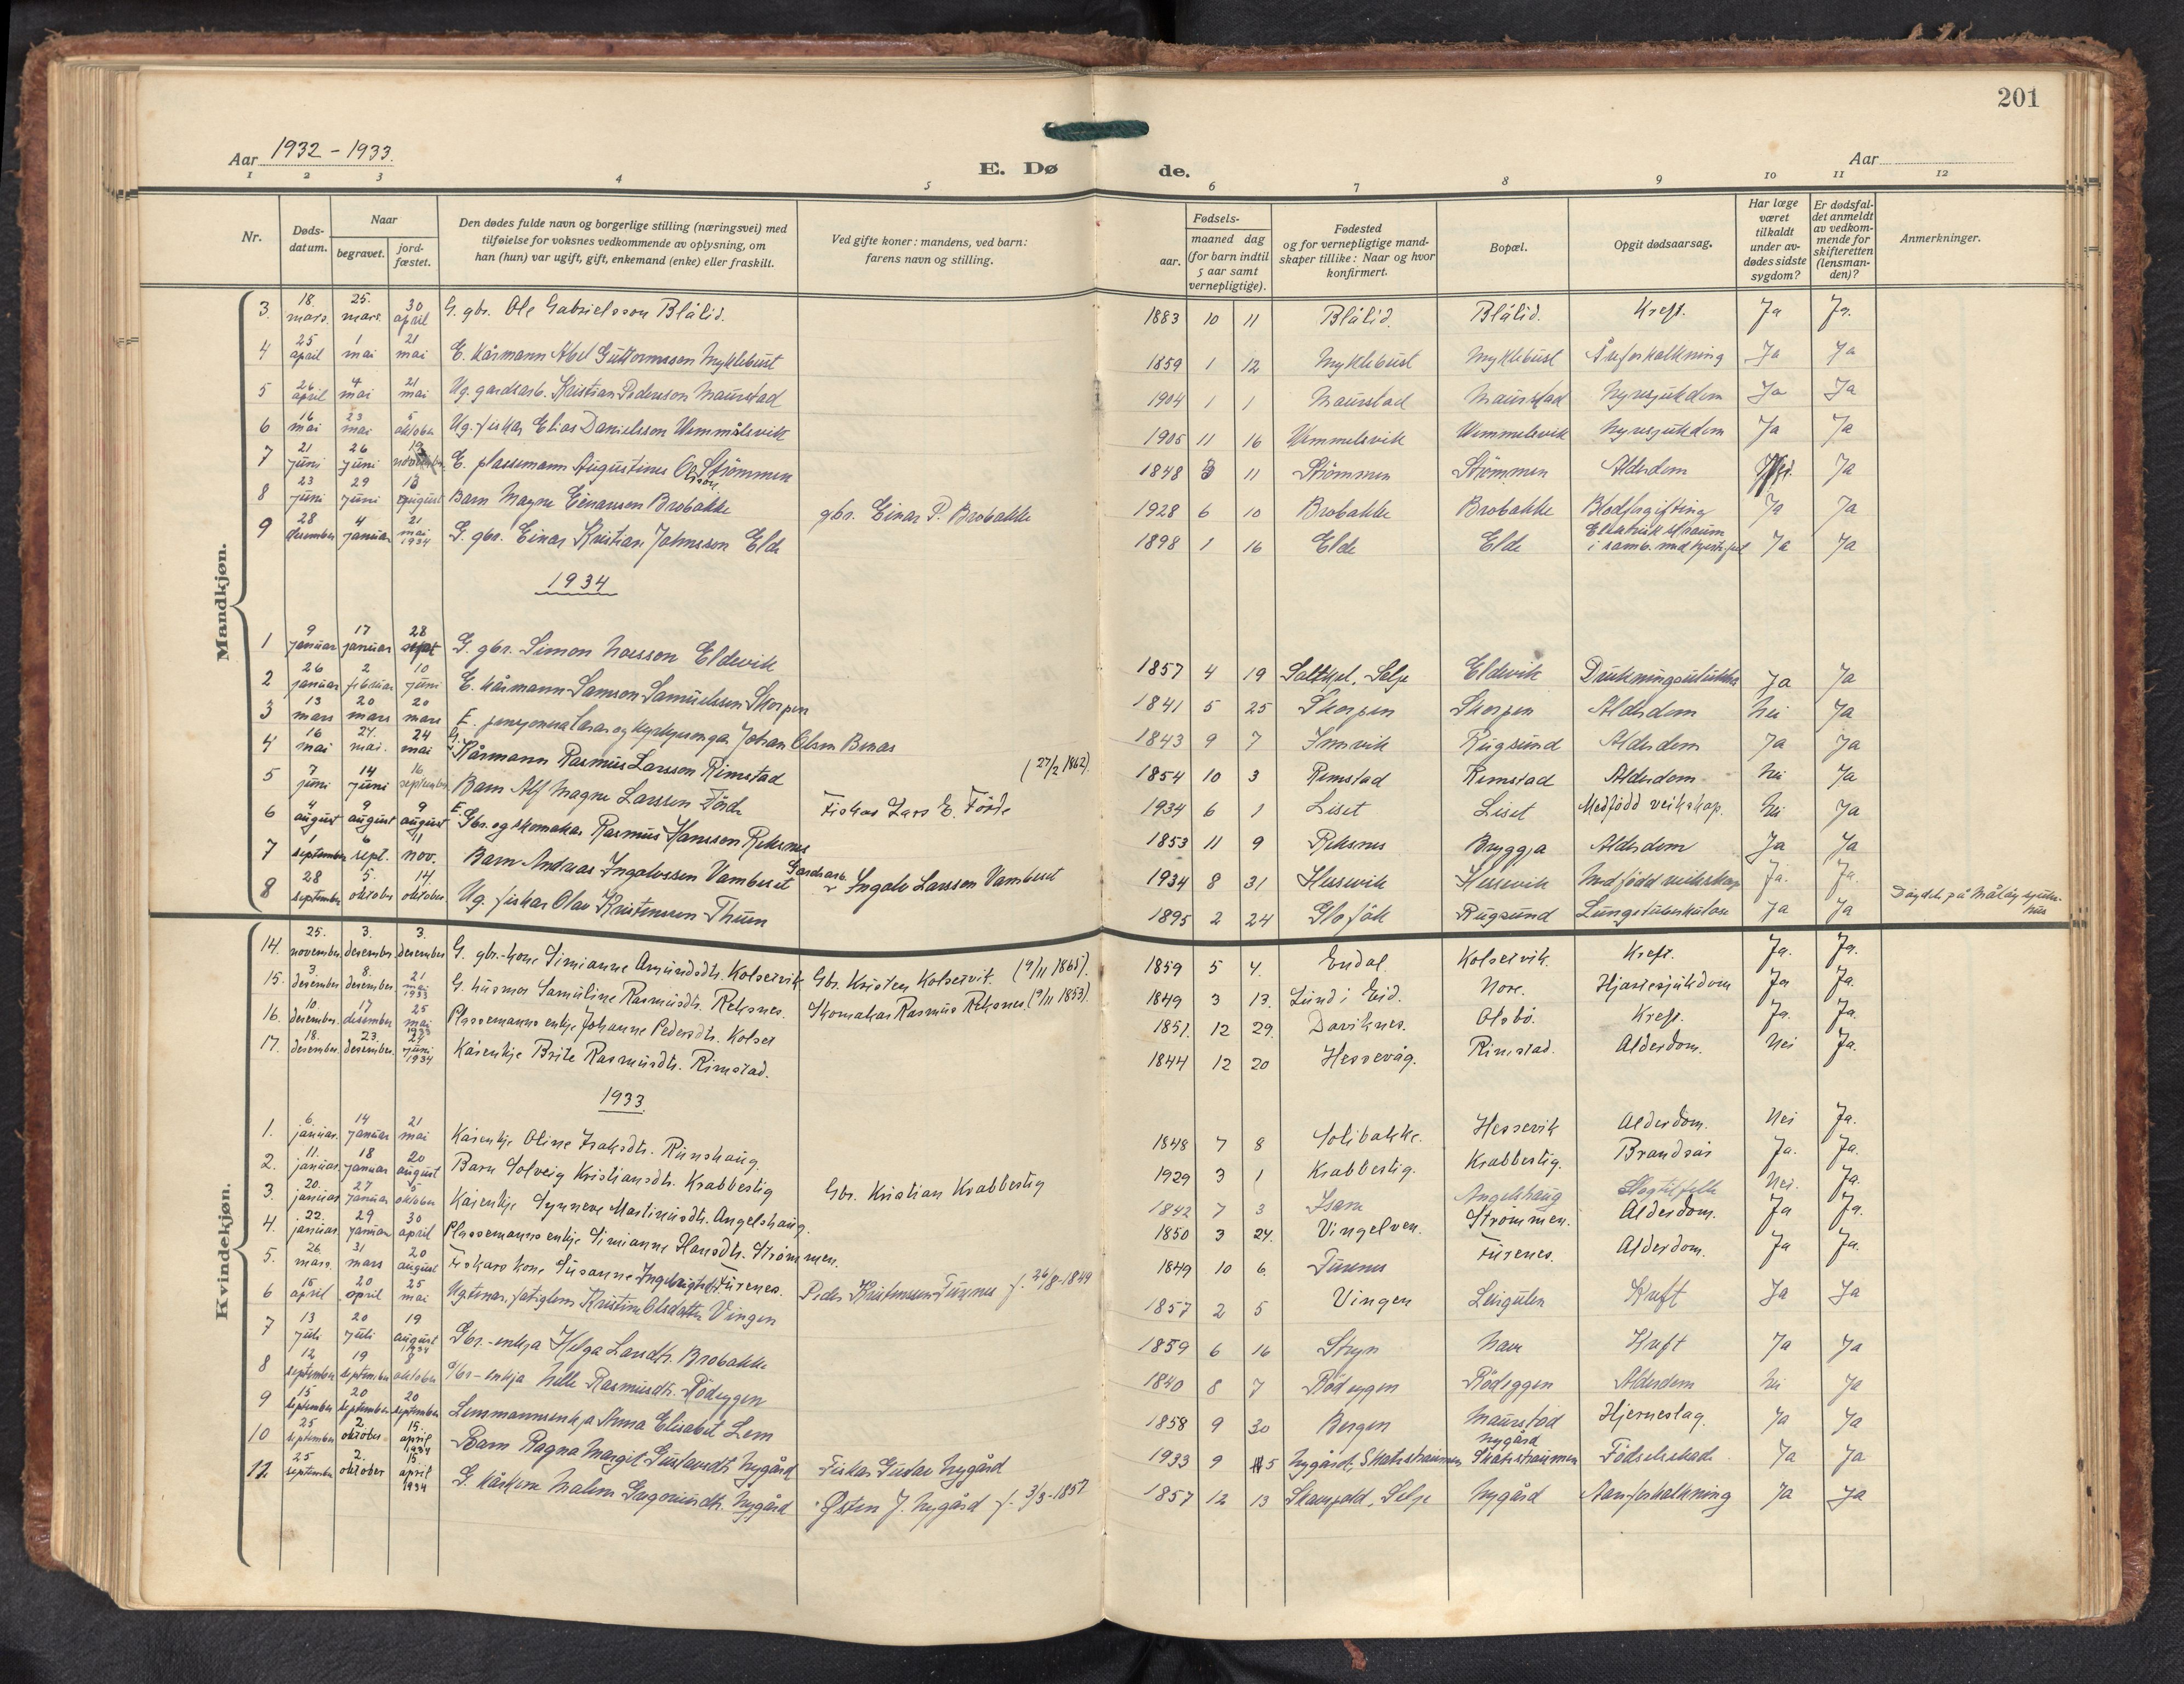 201
Aar 1932 - 1933.
E. Dø de.
Aar
1 2 3 4 5 6 7 8 9 10 11 12
Nr.
Døds-datum.
Naar
begravet.
jord-fæstet.
Den dødes fulde navn og borgerlige stilling (næringsvei) med
tilføielse for voksnes vedkommende av oplysning, om
han (hun) var ugift, gift, enkemand (enke) eller fraskilt.
Ved gifte koner: mandens, ved barn:
farens navn og stilling.
Fødsels-
aar.
maaned dag
(for barn indtil
5 aar samt
vernepligtige).
Fødested
og for vernepligtige mand-
skaper tillike: Naar og hvor
konfirmert.
Bopæl.
Opgit dødsaarsag.
Har læge
været
tilkaldt
under av-
dødes sidste
sygdom?
Er dødsfal-
det anmeldt
av vedkom-
mende for
skifteretten
(lensman-
den)?
Anmerkninger.
Mandkjøn.
3. 18. mars. 25. mars. 30 april G. gbr. Ole Gabrielsson Blålid. 1883 10 11 Blålid. Blålid. Kreft. Ja Ja.
4 25 april 1 mai 21 mai E. kårmann Abel Guttormsson Myklebust 1859 1 12 Myklebust Myklebust Åreforkalkning Ja Ja
5 26 april 4 mai 21 mai Ug. gardsarb. Kristian Pedersson Maurstad 1904 1 1 Maurstad Maurstad Nyresjukdom Ja Ja
6 16 mai 23 mai 5 oktober Ug. fiskar Elias Danielsson Wemmelsvik 1905 11 16 Wemmelsvik Wemmelsvik Nyresjukdom Ja Ja
7 21 juni 26 juni 19 november E. plassemann Augustinus Olsson Strömmen 1848 3 11 Strömmen Strömmen Alderdom Nei. Ja
8 23 juni 29 juni 13 august Barn Magne Einarsson Brobakke gbr. Einar P. Brobakke 1928 6 10 Brobakke Brobakke Blodforgifting Ja Ja
9 28 desember 4 januar 21 mai 1934 G. gbr. Einar Kristian Johnsson Elde 1898 1 16 Elde Elde Elektrisk straum i samb. med Ja Ja
1934
1 9 januar 17 januar 28 sept G. gbr. Simon Moesson Eldevik 1857 4 19 Saltkjel, Selje Eldevik Drukningsulukka Ja Ja
2 26 januar 2 februar 10 juni E. kårmann Samson Samuelssen Skorpen 1841 5 25 Skorpen Skorpen Alderdom Nei Ja
3 13 mars 20 mars 20 mars E. pensjonera lærar og kyrkjesongar Johan Olsen Benas 1843 9 7 Innvik Rugsund Alderdom Ja Ja
4 16 mai 24. mai. 24 mai G. Kårmann Rasmus Larsson Rimstad (27/2 1862). 1854 10 3 Remstad Remstad Alderdom Nei Ja
5 7 juni 14 juni 16 september Barn Alf Magne Larssen Förde Fiskar Lars E. Förde 1934 6 1 Liset Liset Medfödd veikskap. Nei Ja
6 4 august 9 august 9 august E. Gbr. og skomakar Rasmus Hansson Reksnes 1853 11 9 Reksnes Bryggja Alderdom Ja Ja
7 1 september 6 sept. 11 nov. Barn Andreas Ingolvssen Vamberset Gardsarb. Ingolv Larsson Vamberset 1934 8 31 Hessevik Hessevik Medfödd veikskap Ja. Ja.
8 28 september 5. oktober 14. oktober Ug. fiskar Olav Kristenssen Thuen 1895 2 24 Rugsund Lungetuberkulose Ja Ja Döydde på Måløy sjukehus
Kvindekjøn.
14. 25. november 3. desember 3. desember G. gbr.-kone Simianne Amundsdtr. Kolsetvik Gbr. Kristen Kolsetvik. (9/11 1865). 1859 5 4. Endal. Kolsetvik. Kreft. Ja. Ja.
15. 3. desember 8. desember 21 mai 1933 G. husmor Samuline Rasmusdtr. Reksnes. Skomakar Rasmus Reksnes. (9/11 1853). 1849 3 13. Lund i Eid. Nore. Hjartesjukdom Ja Ja.
16. 10. desember. 17 desember 25 mai 1933 Plassemanns enkje Johanne Pedersdtr. Kolset 1851. 12 29. Daviknes. Olsbö. Kreft. Ja. Ja.
17. 18. desember. 23. desember. 24 juni 1934 Kårenkje Brite Rasmusdtr. Rimstad. 1844 12 20 Hessevåg. Rimstad. Alderdom. Nei Ja.
1933.
1. 6. januar. 14 januar 21 mai Kårenkje Oline Isaksdtr. Runshaug. 1848 7 8 Solibakke. Hessevik Alderdom. Nei Ja.
2. 11. januar. 18 januar 20 august Barn Solveig Kristiansdtr. Krabbestig Gbr. Kristian Krabbestig 1929 3 1 Krabbestig. Krabbestig. Brandsår Ja. Ja.
3. 20. januar 27 januar 5 oktober Kårenkje Synneve Martinusdtr. Angelshaug. 1842 7 3 Isane Angelshaug Slagtilfelle Nei. Ja.
4. 22. januar 29 januar 30 april Plassemanns enkje Simianne Hansdtr. Strömmen. 1850 3 24. Vingelven. Strömmen. Alderdom. Ja Ja.
5. 26. mars. 31 mars 20 august Fiskars kone Susanne Ingebrigtsdtr. Furenes. Peder Kristenssen Furenes f. 26/8-1849 1849 10 6. Furenes Furenes. Alderdom. Ja Ja.
6 15 april 20 april 25 mai Ug. tenar, fatiglem Kristine Olsdatter Vingen 1857 2 5 Vingen Leirgulen Kreft Ja Ja
7 13 juli 20 juli 19 august 1934 Gbr.-enkja Helga Larsdtr. Brobakke 1859 6 16 Stryn Nave Kreft Ja Ja
8 12 september 19 september 8 oktober Gbr-enkja Nille Rasmusdtr. Rödeggen 1840 8 7 Rödeggen Rödeggen Alderdom Nei Ja
9 15 september 20 september 20 september Lensmannsenkja Anna Elisabet Lem 1858 9 30 Bergen Maurstad Hjerneslag. Ja Ja
10 25 september 2. oktober 15. april 1934 Barn Ragna Margit Gustavsdtr. Nygård Fiskar Gustav Nygård 1933 9 5 Nygård, Skatestraumen Nygård Skatestraumen Födselsskade Ja Ja
11. 25 september 2. oktober 15. april 1934 G. kårkone Malene Gregoriusdtr. Nygård Østen J. Nygård f. 3/3-1857 1857 12 13 Selje Nygård Aareforkalkning Ja Ja